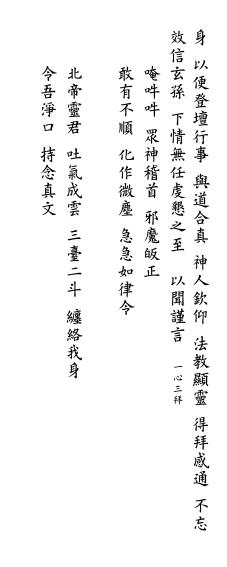 身 以便登壇行事 與道合真 神人欽仰 法教顯靈 得拜感通 不忘
效信玄孫 下情無任虔懇之至 以聞謹言 一心三拜
唵吽吽 眾神稽首 邪魔皈正
敢有不順 化作微塵 急急如律令
北帝靈君 吐氣成雲 三臺二斗 纏絡我身
令吾淨口 持念真文